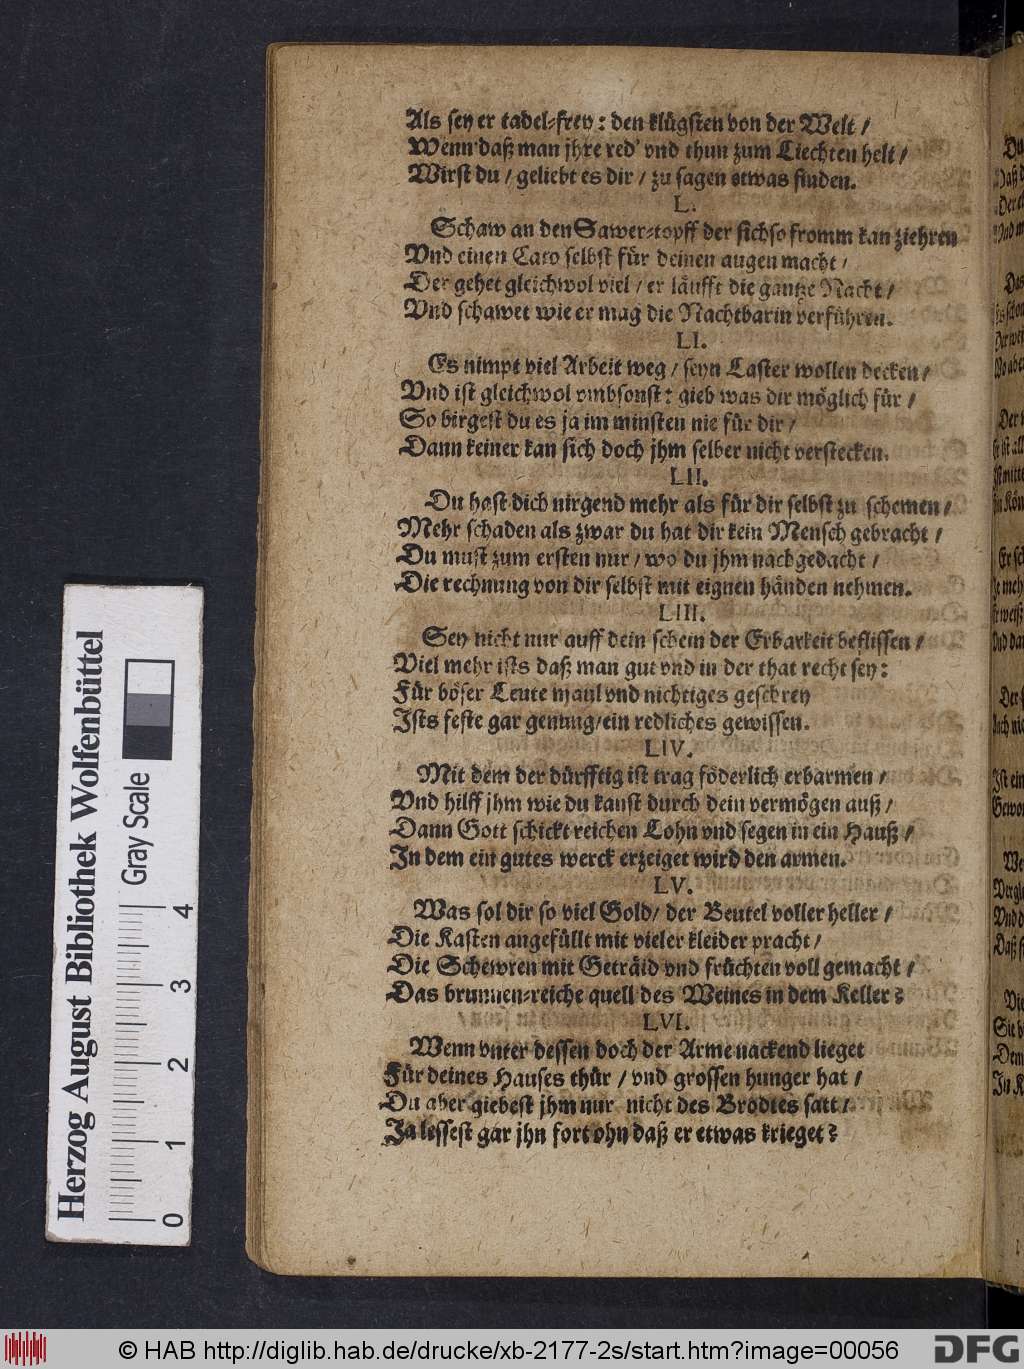 Als sey er tadel-frey: den klügsten von der Welt /
Wenn daß man jhre red' vnd thun zum Liechten helt /
Wirst du / geliebt es dir / zu sagen etwas finden.
L.
Schaw an den Sawer-topff der sich so fromm kan ziehren
Vnd einen Cato selbst für deinen augen macht /
Der gehet gleichwol viel / er läufft die gantze Nacht /
Vnd schawet wie er mag die Nachtbarin verführen.
LI.
Es nimpt viel Arbeit weg / seyn Laster wollen decken /
Vnd ist gleichwol vmbsonst: gieb was dir möglich für /
So birgest du es ja im minsten nie für dir /
Dann keiner kan sich doch jhm selber nicht verstecken.
LII.
Du hast dich nirgend mehr als für dir selbst zu schemen /
Mehr schaden als zwar du hat dir kein Mensch gebracht /
Du must zum ersten nur / wo du jhm nachgedacht /
Die rechnung von dir selbst mit eignen händen nehmen.
LIII.
Sey nicht nur auff dein schein der Erbarkeit beflissen /
Viel mehr ists daß man gut vnd in der that recht sey:
Für böser Leute maul vnd nichtiges geschrey
Ists feste gar genung / ein redliches gewissen.
LIV.
Mit dem der dürfftig ist trag föderlich erbarmen /
Vnd hilff jhm wie du kanst durch dein vermögen auß /
Dann Gott schickt reichen Lohn vnd segen in ein Hauß /
In dem ein gutes werck erzeiget wird den armen.
LV.
Was sol dir so viel Gold / der Beutel voller heller /
Die Kasten angefüllt mit vieler kleider pracht /
Die Schewren mit Geträid vnd früchten voll gemacht /
Das brunnen-reiche quell des Weines in dem Keller?
LVI.
Wenn vnter dessen doch der Arme nackend lieget
Für deines Hauses thür / vnd grossen hunger hat /
Du aber giebest jhm nur nicht des Brodtes satt /
Ja lessest gar jhn fort ohn daß er etwas krieget?
Herzog August Bibliothek Wolfenbüttel
Gray Scale
0 1 2 3 4
© HAB http://diglib.hab.de/drucke/xb-2177-2s/start.htm?image=00056
DFG